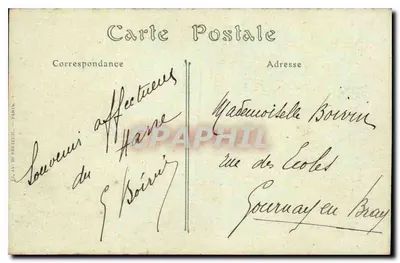 Carte Postale
Correspondance
Adresse
Souvenir affectueux
du Havre
E Boivin
Mademoiselle Boivin
rue des Ecoles
Gournay en Bray
CPAPHIL